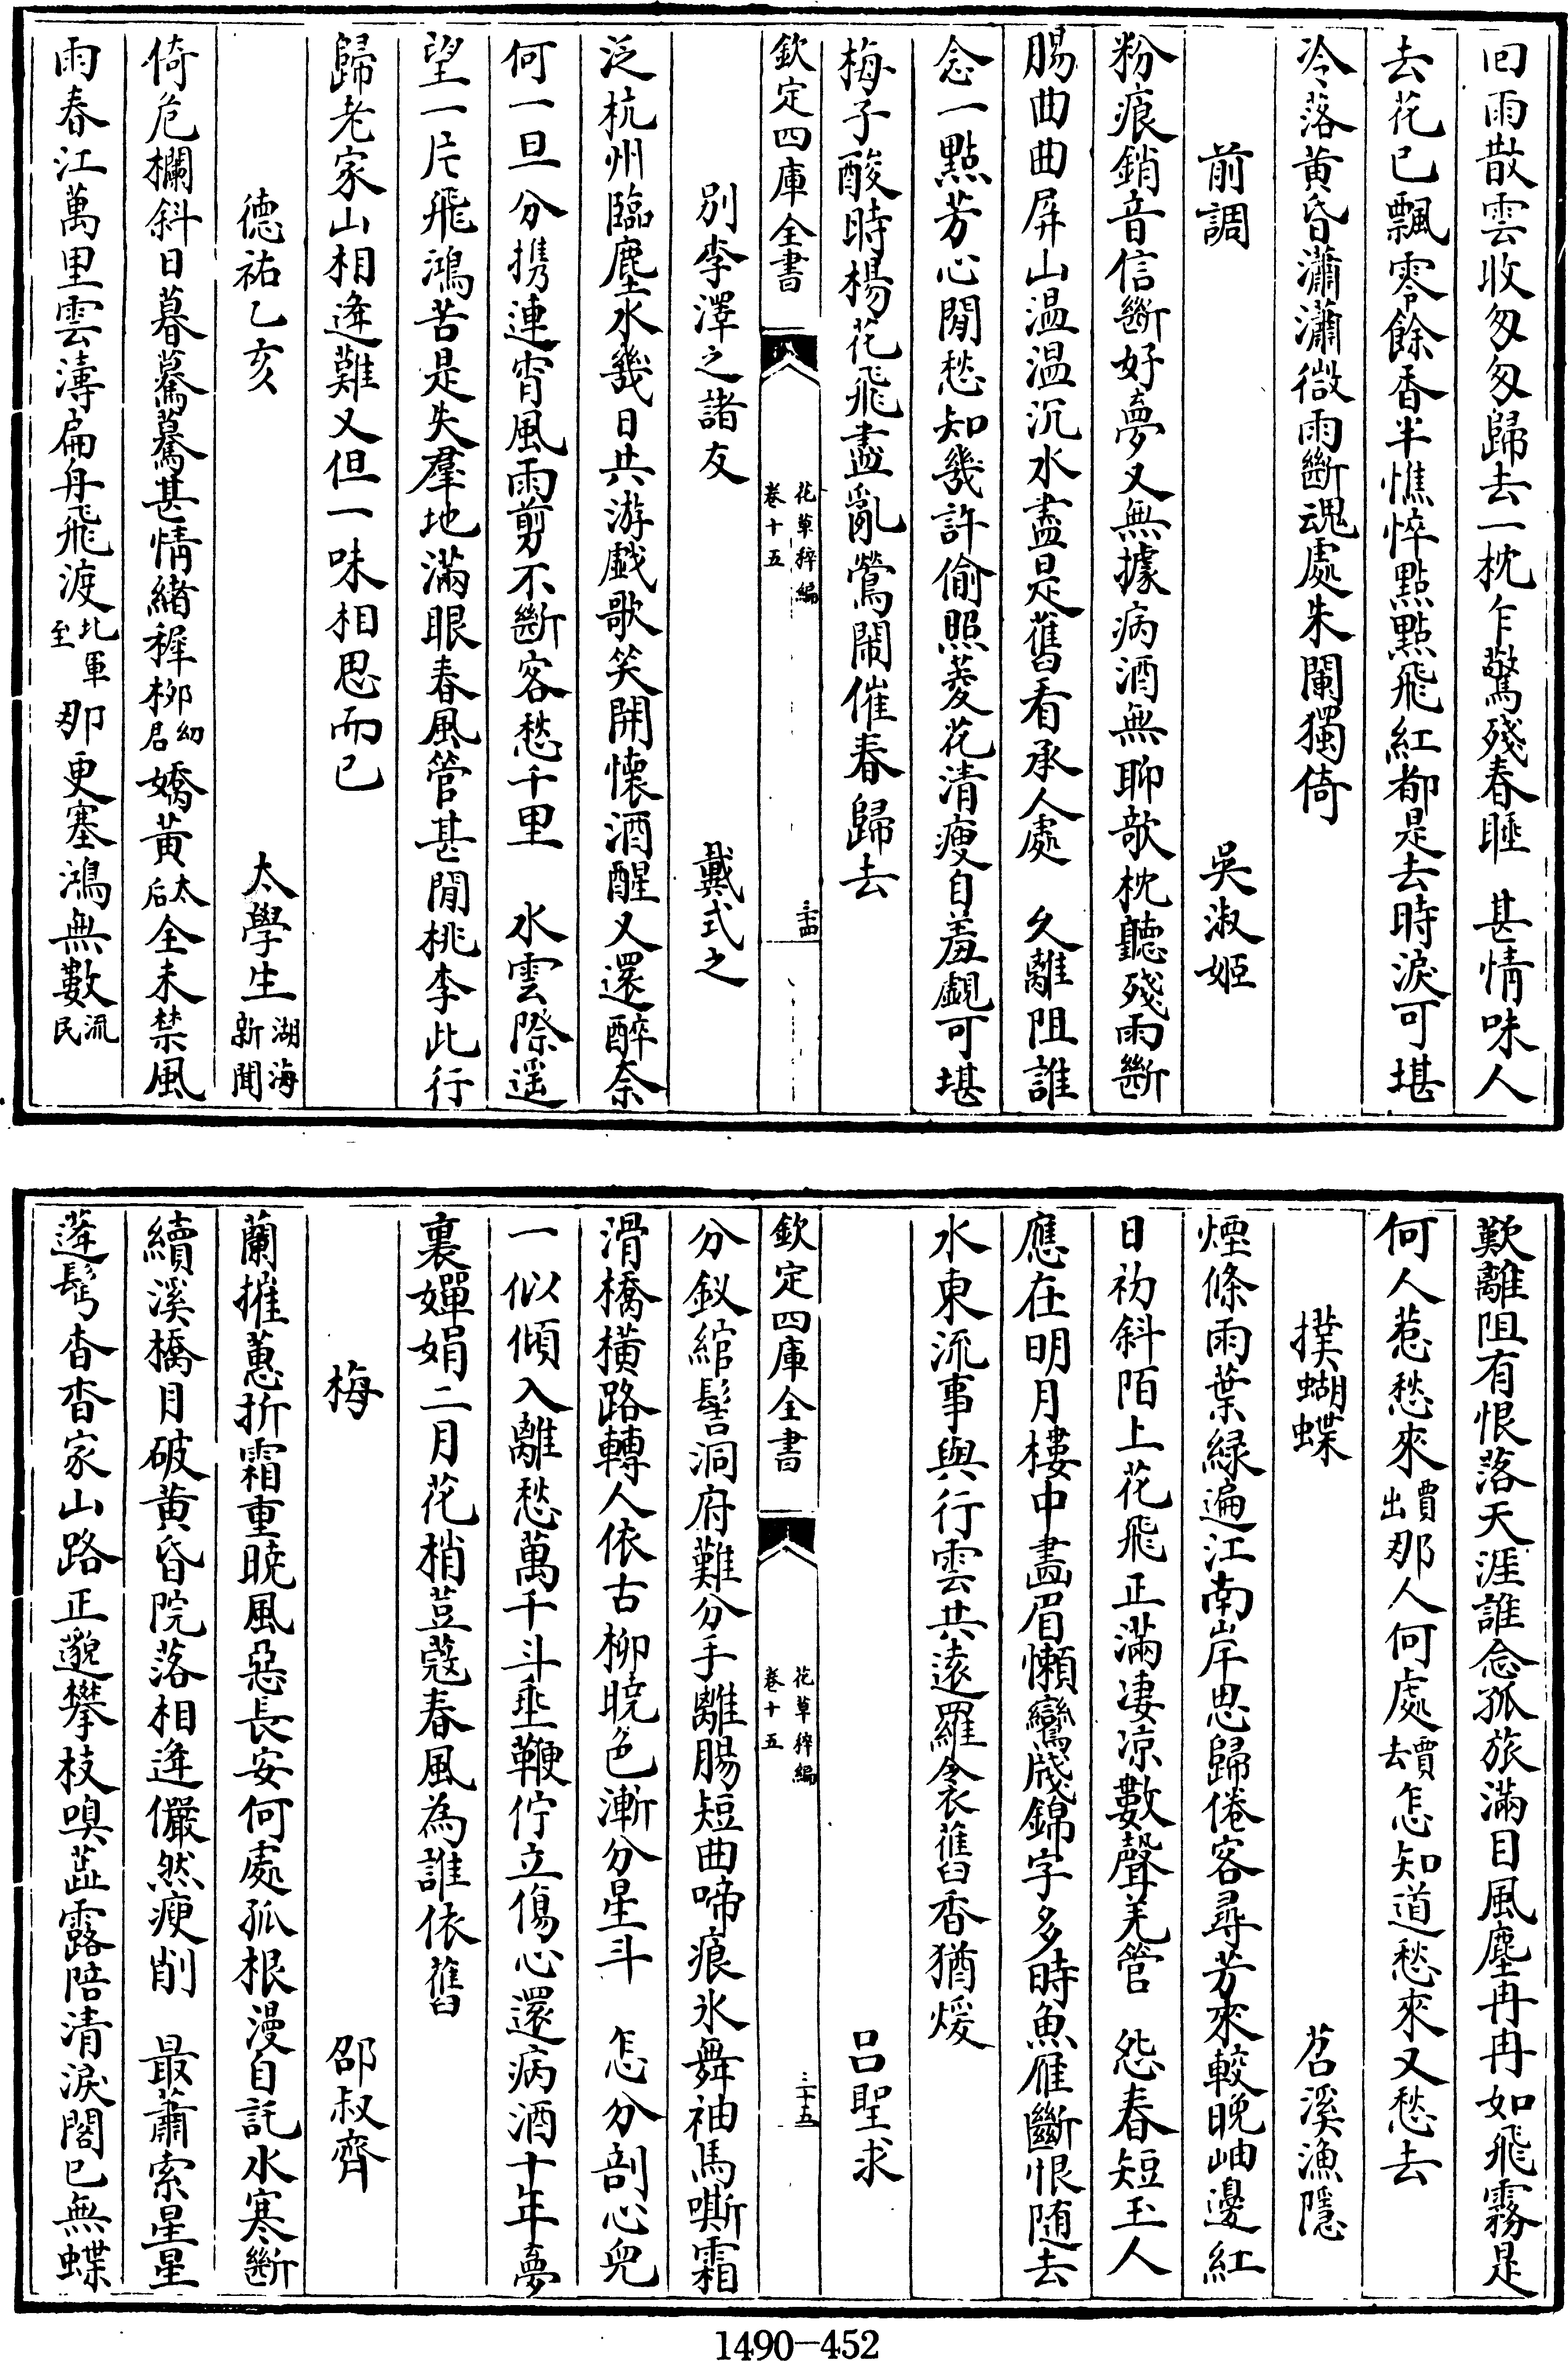 回雨散雲收匆匆歸去一枕乍驚殘春睡　甚情味人
去花已飄零餘香半憔悴點點飛紅都是去時淚可堪
冷落黃昏瀟瀟微雨斷魂處朱闌獨倚
前調　吳淑姬
粉痕銷音信斷好夢又無據病酒無聊欹枕聽殘雨斷
腸曲曲屏山温温沉水盡是舊看承人處　久離阻誰
念一點芳心閒愁知幾許偷照菱花清瘦自羞覷可堪
梅子酸時楊花飛盡亂鶯鬧催春歸去
欽定四庫全書　花草稡編卷十五　三十四
別李澤之諸友　戴式之
泛杭州臨塵水幾日共游戲歌笑開懷酒醒又還醉奈
何一旦分攜連宵風雨剪不斷客愁千里　水雲際遥
望一片飛鴻苦是失羣地滿眼春風管甚閒桃李此行
歸老家山相逢難又但一味相思而已
德祐乙亥　太學生湖海新聞
倚危欄斜日暮驀驀甚情緒穉柳幼君嬌黃太后全未禁風
雨春江萬里雲濤扁舟飛渡北軍至那更塞鴻無數流民
歎離阻有恨落天涯誰念孤旅滿目風塵冉冉如飛霧是
何人惹愁來賈出那人何處賈去怎知道愁來又愁去
撲蝴蝶　苕溪漁隱
煙條雨葉緑遍江南岸思歸倦客尋芳來較晚岫邊紅
日初斜陌上花飛正滿凄凉數聲羌管　怨春短玉人
應在明月樓中畫眉懶鸞牋錦字多時魚雁斷恨随去
水東流事與行雲共遠羅衾舊香猶煖
吕聖求
欽定四庫全書　花草稡編卷十五　三十五
分釵綰髻洞府難分手離腸短曲啼痕氷舞袖馬嘶霜
滑橋橫路轉人依古柳曉色漸分星斗　怎分剖心兒
一似傾入離愁萬千斗垂鞭佇立傷心還病酒十年夢
裏嬋娟二月花梢荳蔻春風為誰依舊
梅　邵叔齊
蘭摧蕙折霜重曉風惡長安何處孤根漫自託水寒斷
續溪橋月破黃昏院落相逢儼然瘦削　最蕭索星星
蓬髩杳杳家山路正邈攀枝嗅蕋露陪清淚閣已無蝶
1490-452